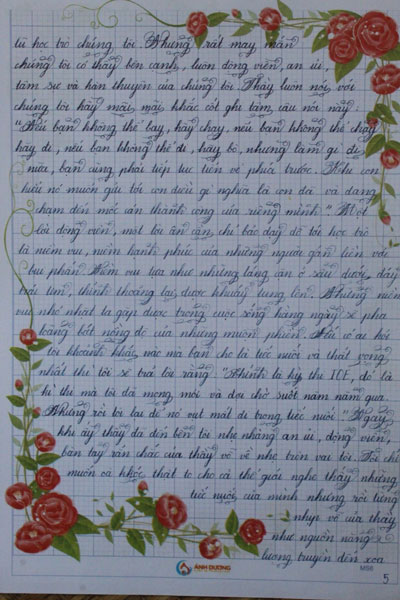 từ học trò chúng tôi. Nhưng rất may mắn
chúng tôi có thầy bên cạnh, luôn động viên, an ủi,
tâm sự và hàn thuyên của chúng tôi. Thầy luôn nói với
chúng tôi hãy mãi mãi khắc cốt ghi tâm câu nói này:
"Nếu bạn không thể bay, hãy chạy, nếu bạn không thể chạy
hãy đi, nếu bạn không thể đi, hãy bò, nhưng làm gì đi
nữa, bạn cũng phải tiếp tục tiến về phía trước. Nếu con
hiểu nó muốn gửi tới con dưới gì nghĩa là con đã và đang
chạm đến mốc ấn thành công của riêng mình". Một
lời động viên, một lời ân cần, chỉ bảo dạy dỗ tôi học trò
là niềm vui, niềm hạnh phúc của những người gắn liền với
bụi phấn. Niềm vui tựa như những lắng cặn ở sâu dưới đáy
trái tim, thỉnh thoảng lại được khuấy tung lên. Những niềm
vui nhỏ nhặt ta gặp được trong cuộc sống hàng ngày sẽ pha
loãng bớt nồng độ của những muộn phiền. Nếu có ai hỏi
tôi khoảnh khắc nào mà bạn cho là tiếc nuối và thất vọng
nhất thì tôi sẽ trả lời rằng: "Chính là kỳ thi IOE, đó là
kì thi mà tôi đã mong mỏi và đợi chờ suốt năm năm qua
Nhưng rồi tôi lại để nó vụt mất đi trong tiếc nuối". Ngay
khi ấy thầy đã đến bên tôi nhẹ nhàng an ủi, động viên,
bàn tay rắn chắc của thầy vỗ về nhẹ trên vai tôi. Tôi chỉ
muốn òa khóc thật to cho cả thế giới nghe thấy những
tiếc nuối của mình nhưng rồi từng
nhịp vỗ của thầy
như nguồn năng
lượng truyền đến xoa
ÁNH DƯƠNG
MS8
5